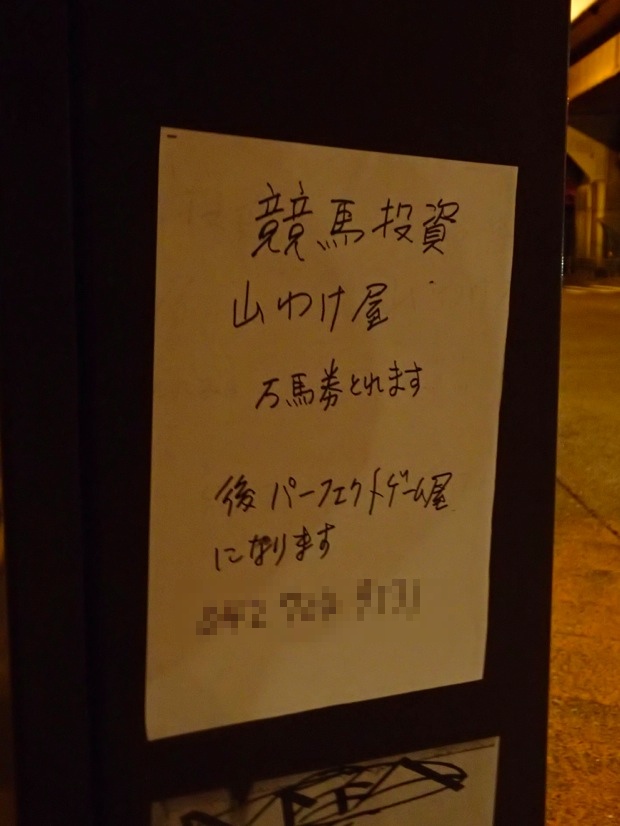 競馬投資
山わけ屋
万馬券とれます
後パーフェクトゲーム屋
になります